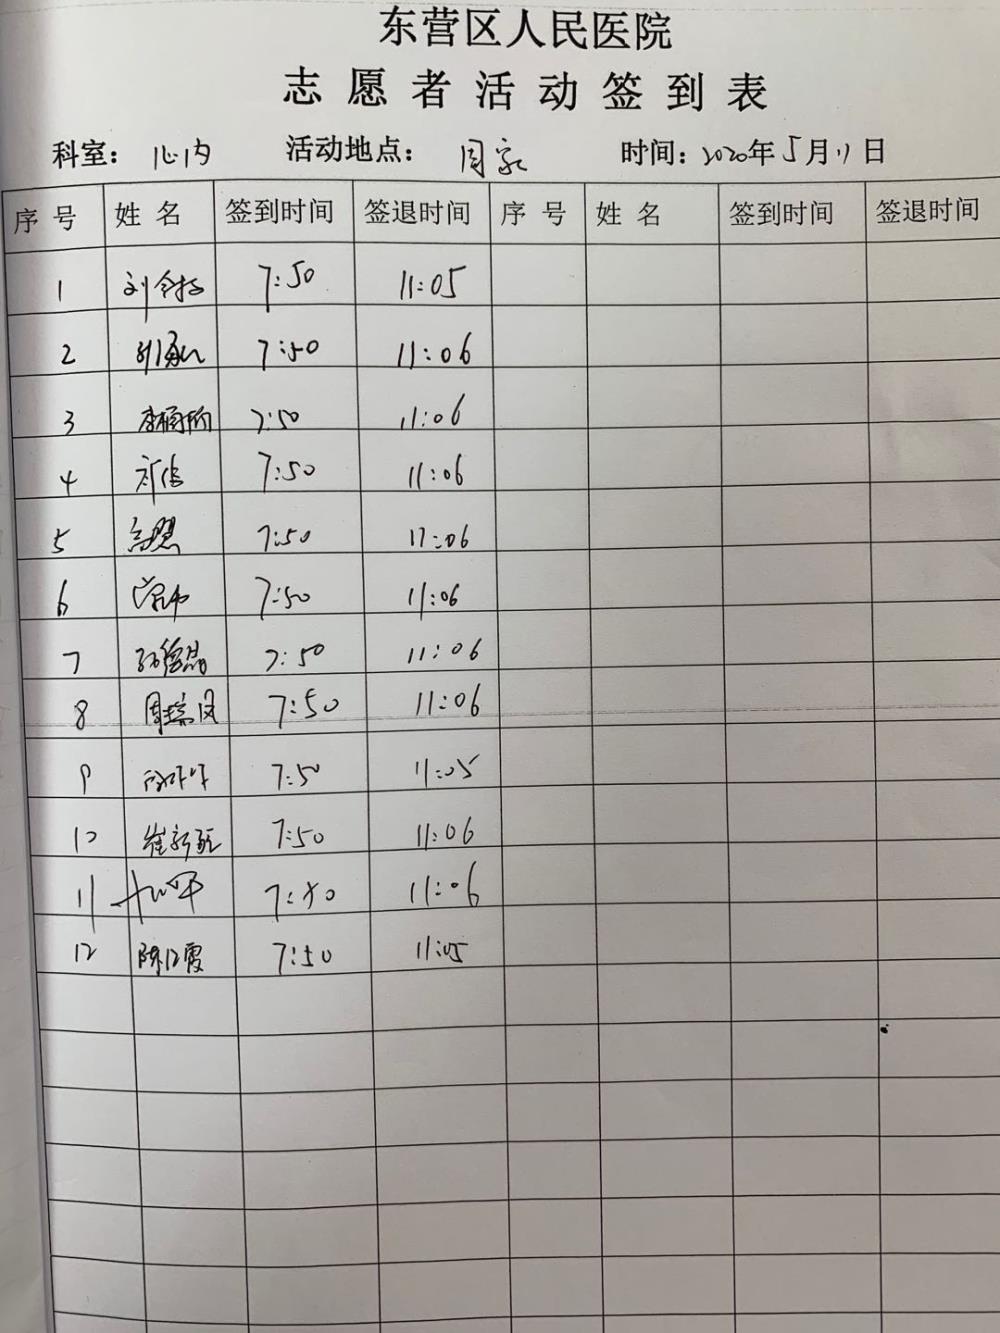 东营区人民医院
志愿者活动签到表
科室： 心内 活动地点： 周家 时间：2020年5月11日
序号 姓名 签到时间 签退时间 序号 姓名 签到时间 签退时间
1 刘 7:50 11:05
2 7:50 11:06
3 7:50 11:06
4 7:50 11:06
5 7:50 11:06
6 7:50 11:06
7 7:50 11:06
8 周瑞凤 7:50 11:06
9 7:50 11:05
10 崔新 7:50 11:06
11 7:50 11:06
12 陈江霞 7:50 11:05